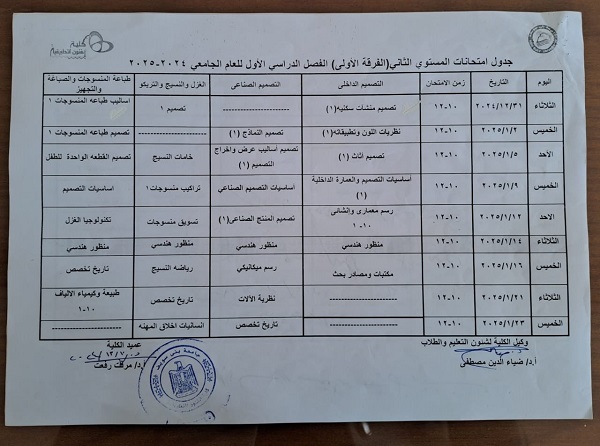 كلية
الفنون التطبيقية
جدول امتحانات المستوي الثاني(الفرقة الأولى) الفصل الدراسي الأول للعام الجامعي ٢٠٢٤-٢٠٢٥
اليوم التاريخ زمن الامتحان التصميم الداخلى التصميم الصناعى الغزل والنسيج والتريكو طباعة المنسوجات والصباغة والتجهيز
الثلاثاء ٢٠٢٤/١٢/٣١ ١٠-١٢ تصميم منشآت سكنيه(١) ------------------ تصميم ١ اساليب طباعه المنسوجات ١
الخميس ٢٠٢٥/١/٢ ١٠-١٢ نظريات اللون وتطبيقاته(١) تصميم النماذج (١) ------------------ تصميم طباعه المنسوجات ١
الأحد ٢٠٢٥/١/٥ ١٠-١٢ تصميم أثاث (١) تصميم أساليب عرض واخراج التصميم (١) خامات النسيج تصميم القطعه الواحدة للطفل
الخميس ٢٠٢٥/١/٩ ١٠-١٢ أساسيات التصميم والعمارة الداخلية (١) أساسيات التصميم الصناعي تراكيب منسوجات١ اساسيات التصميم
الاحد ٢٠٢٥/١/١٢ ١٠-١٢ رسم معمارى وانشائى ١-١٠ تصميم المنتج الصناعى(١) تسويق منسوجات تكنولوجيا الغزل
الثلاثاء ٢٠٢٥/١/١٤ ١٠-١٢ منظور هندسي منظور هندسي منظور هندسي منظور هندسي
الخميس ٢٠٢٥/١/١٦ ١٠-١٢ مكتبات ومصادر بحث رسم ميكانيكي رياضه النسيج تاريخ تخصص
الثلاثاء ٢٠٢٥/١/٢١ ١٠-١٢ ------------------ نظرية الآلات تاريخ تخصص طبيعة وكيمياء الالياف ١-١٠
الخميس ٢٠٢٥/١/٢٣ ١٠-١٢ ------------------ تاريخ تخصص انسانيات اخلاق المهنه ------------------
وكيل الكلية لشئون التعليم والطلاب
أ.د/ ضياء الدين مصطفى
عميد الكلية
أ.د/ مرفت رفعت